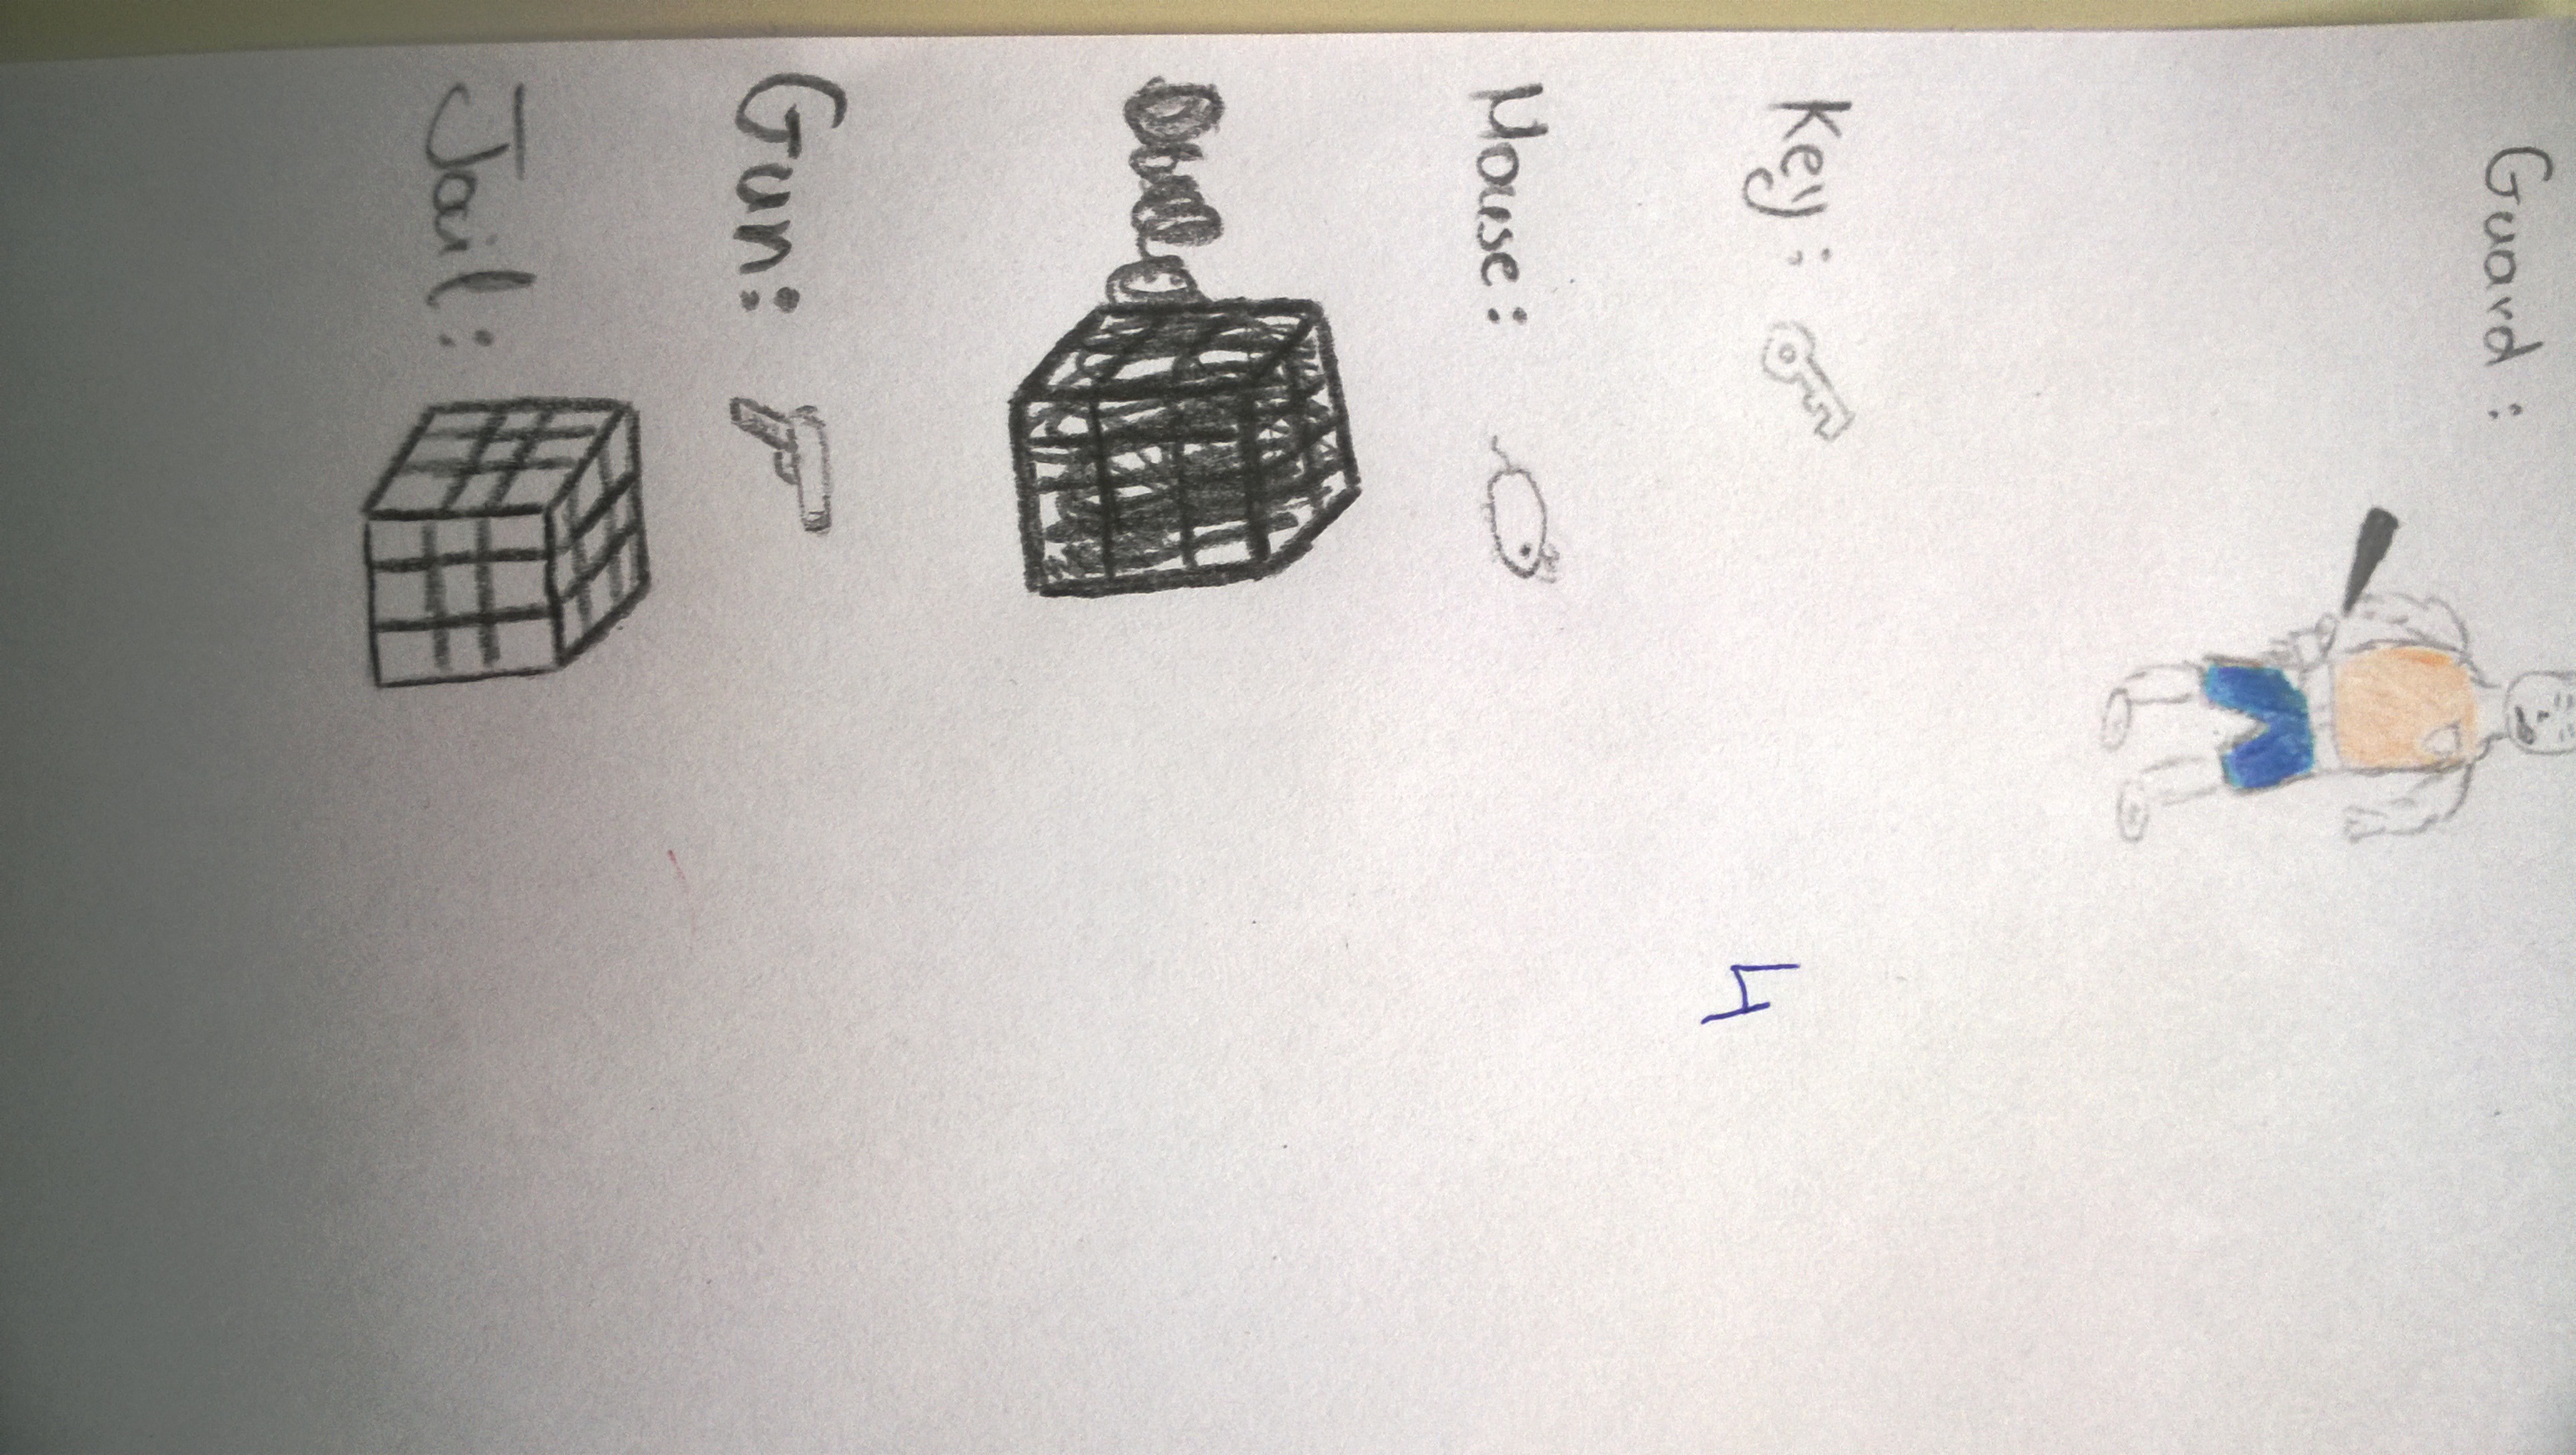 Guard :
Key :
4
Mouse :
Gun :
Jail :